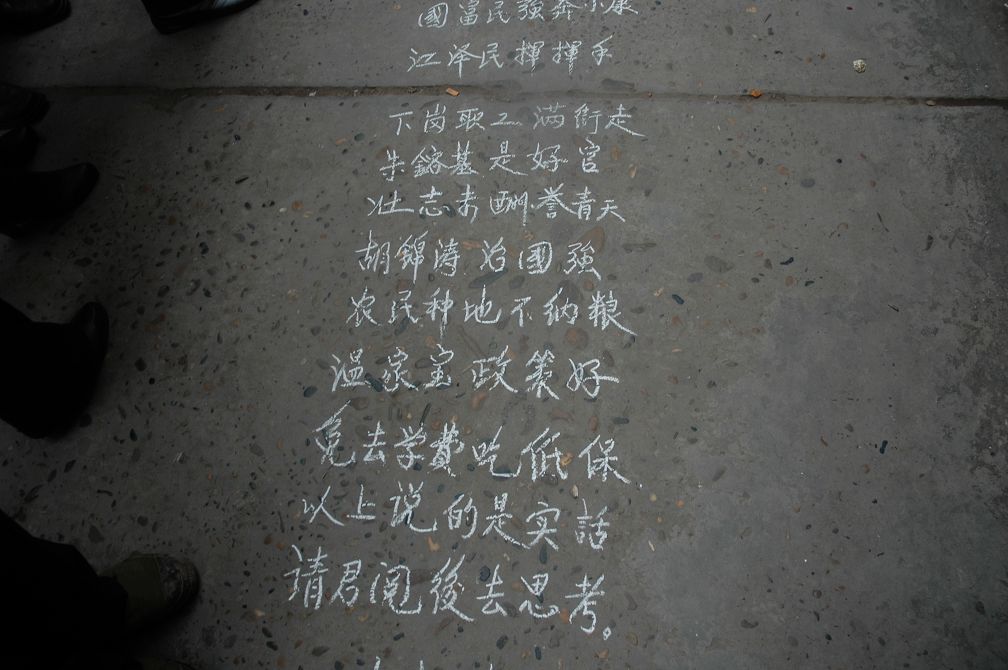 國富民強奔小康
江泽民揮揮手
下崗职工满街走
朱鎔基是好官
壮志未酬誉青天
胡錦涛治國強
农民种地不纳粮
温家宝政策好
免去学費吃低保
以上说的是实話
请君阅後去思考。